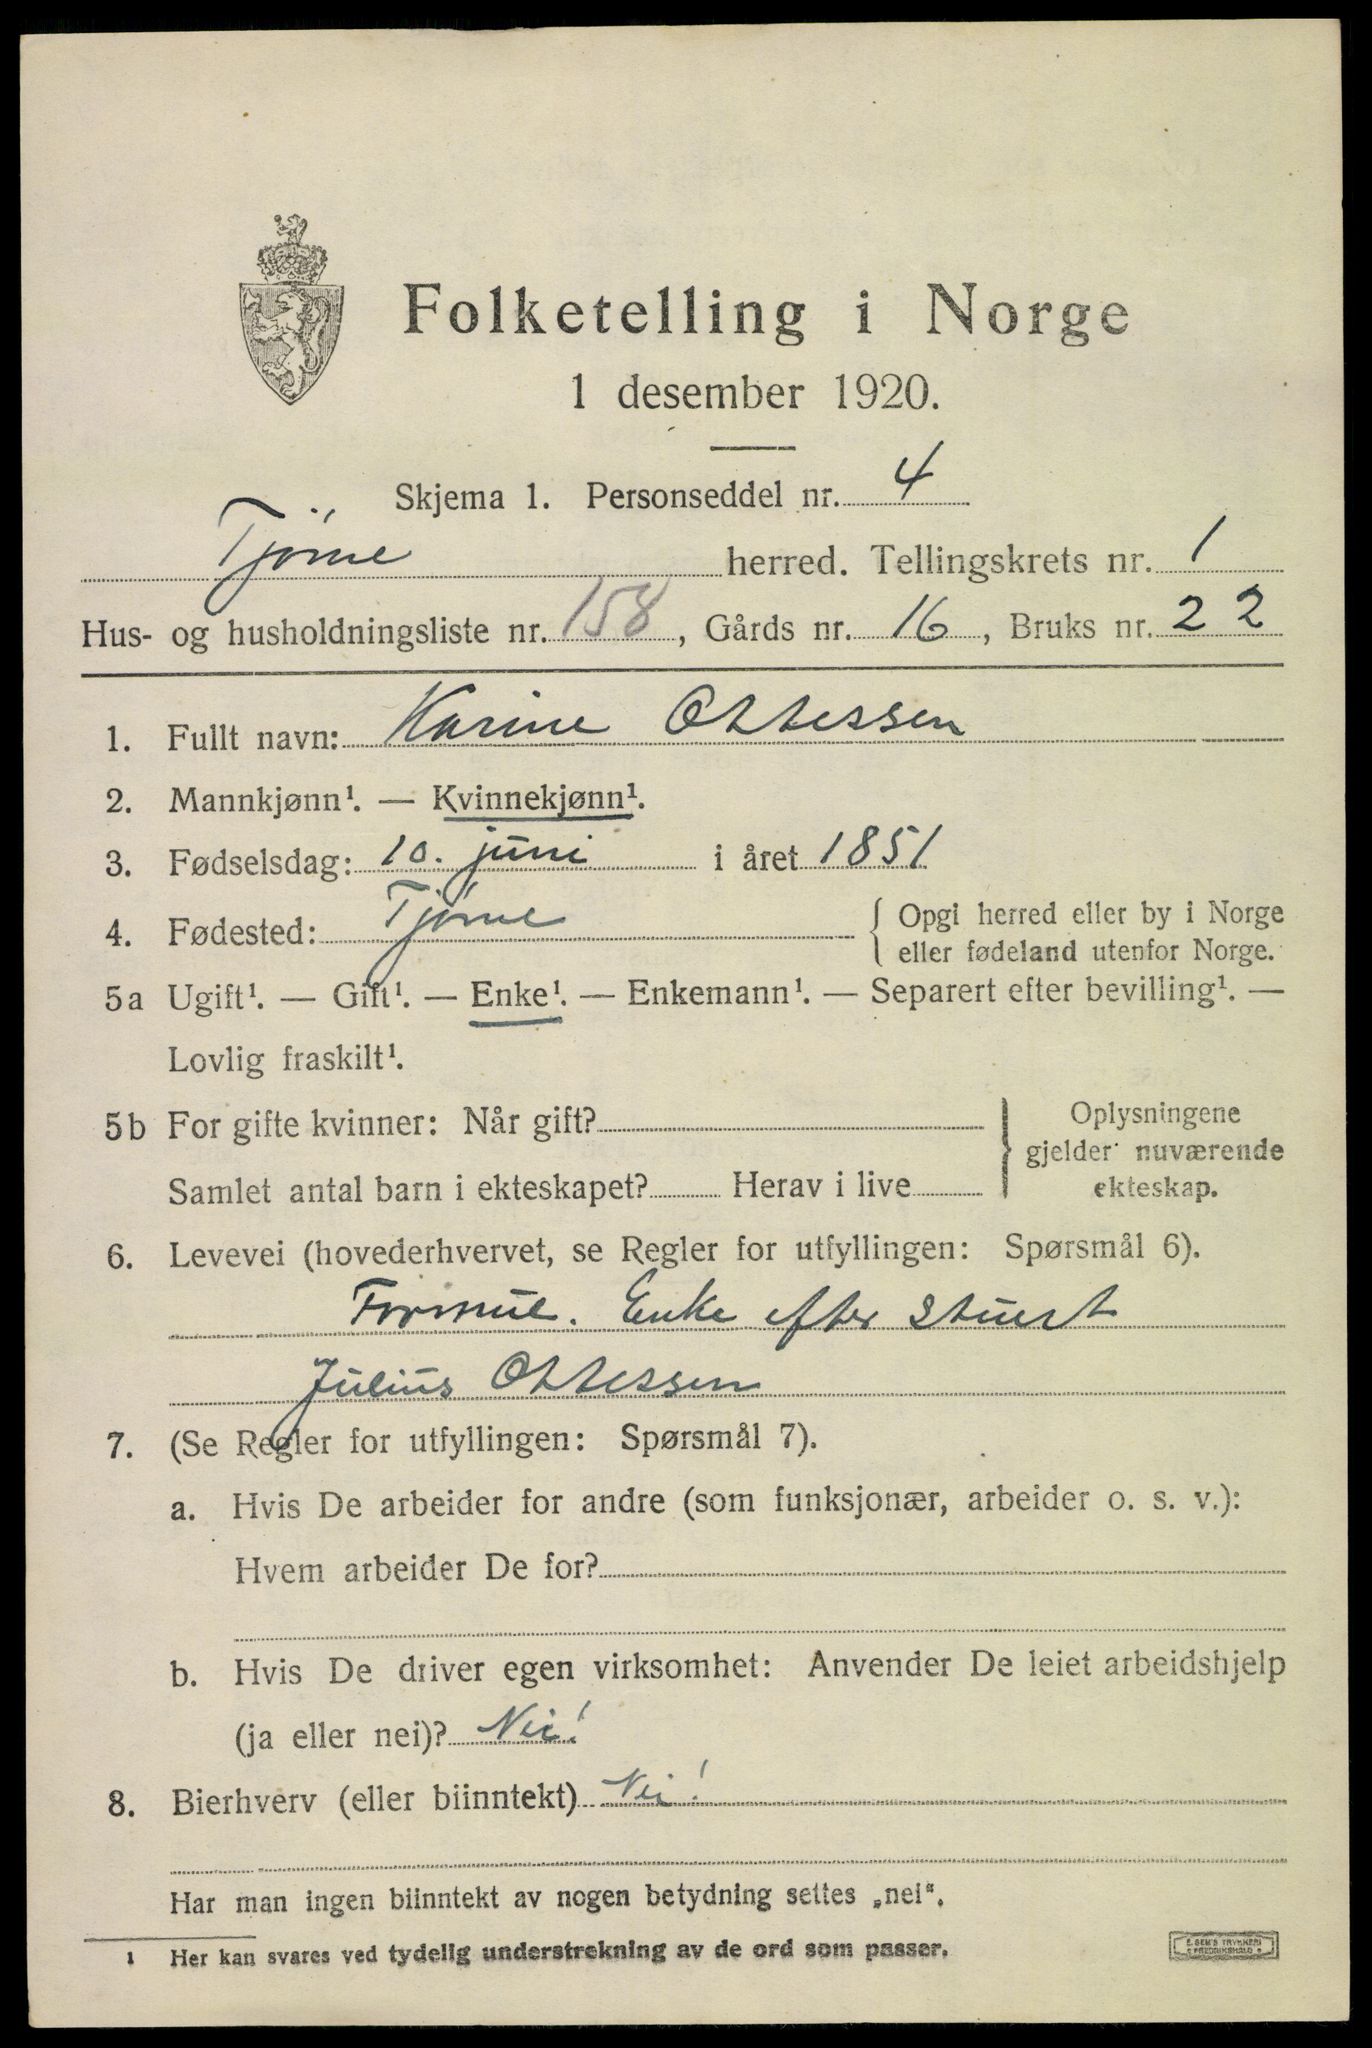 Folketelling i Norge
1 desember 1920.
Skjema 1. Personseddel nr. 4
Tjøme herred. Tellingskrets nr. 1
Hus- og husholdningsliste nr. 158, Gårds nr. 16, Bruks nr. 22
1. Fullt navn: Karine Ottessen
2. Mannkjønn¹. — Kvinnekjønn¹.
3. Fødselsdag: 10. juni i året 1851
4. Fødested: Tjøme { Opgi herred eller by i Norge
eller fødeland utenfor Norge.
5a Ugift¹. — Gift¹. — Enke¹. — Enkemann¹. — Separert efter bevilling¹. —
Lovlig fraskilt¹.
5b For gifte kvinner: Når gift? } Oplysningene
gjelder nuværende
Samlet antal barn i ekteskapet? Herav i live ekteskap.
6. Levevei (hovederhvervet, se Regler for utfyllingen: Spørsmål 6).
Formue. Enke efter Stuert
Julius Ottessen
7. (Se Regler for utfyllingen: Spørsmål 7).
a. Hvis De arbeider for andre (som funksjonær, arbeider o. s. v.):
Hvem arbeider De for?
b. Hvis De driver egen virksomhet: Anvender De leiet arbeidshjelp
(ja eller nei)? Nei!
8. Bierhverv (eller biinntekt) Nei!
Har man ingen biinntekt av nogen betydning settes „nei“.
1 Her kan svares ved tydelig understrekning av de ord som passer.
E. SEM'S TRYKKERI
FREDRIKSHALD